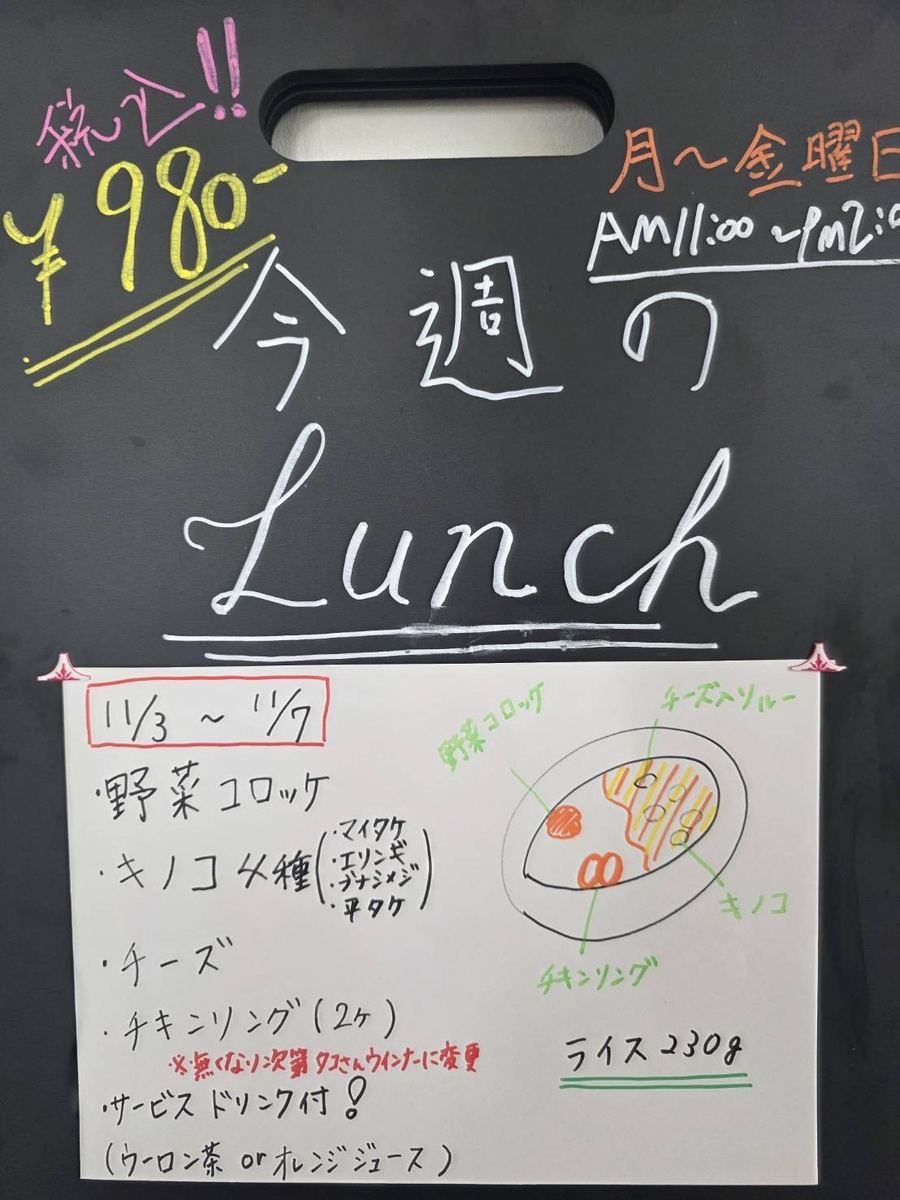 税込!!
¥980-
月〜金曜日
AM11:00〜PM2:0
今週の
Lunch
11/3 〜 11/7
・野菜コロッケ
・キノコ4種(・マイタケ
・エリンギ
・ブナシメジ
・平タケ)
・チーズ
・チキンリング(2ヶ)
※無くなり次第タコさんウインナーに変更
・サービスドリンク付!
(ウーロン茶 or オレンジジュース)
野菜コロッケ
チーズ入りルー
キノコ
チキンリング
ライス230g